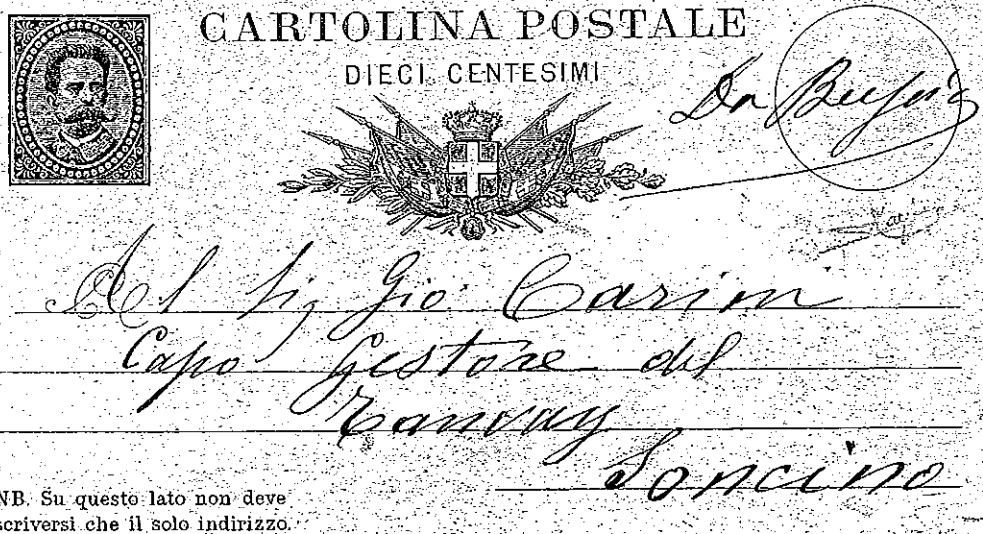 CARTOLINA POSTALE
DIECI CENTESIMI
Da
Al Sig Gio: Carini
Capo Gestore del
Tanvay
Soncino
NB. Su questo lato non deve
scriversi che il solo indirizzo.